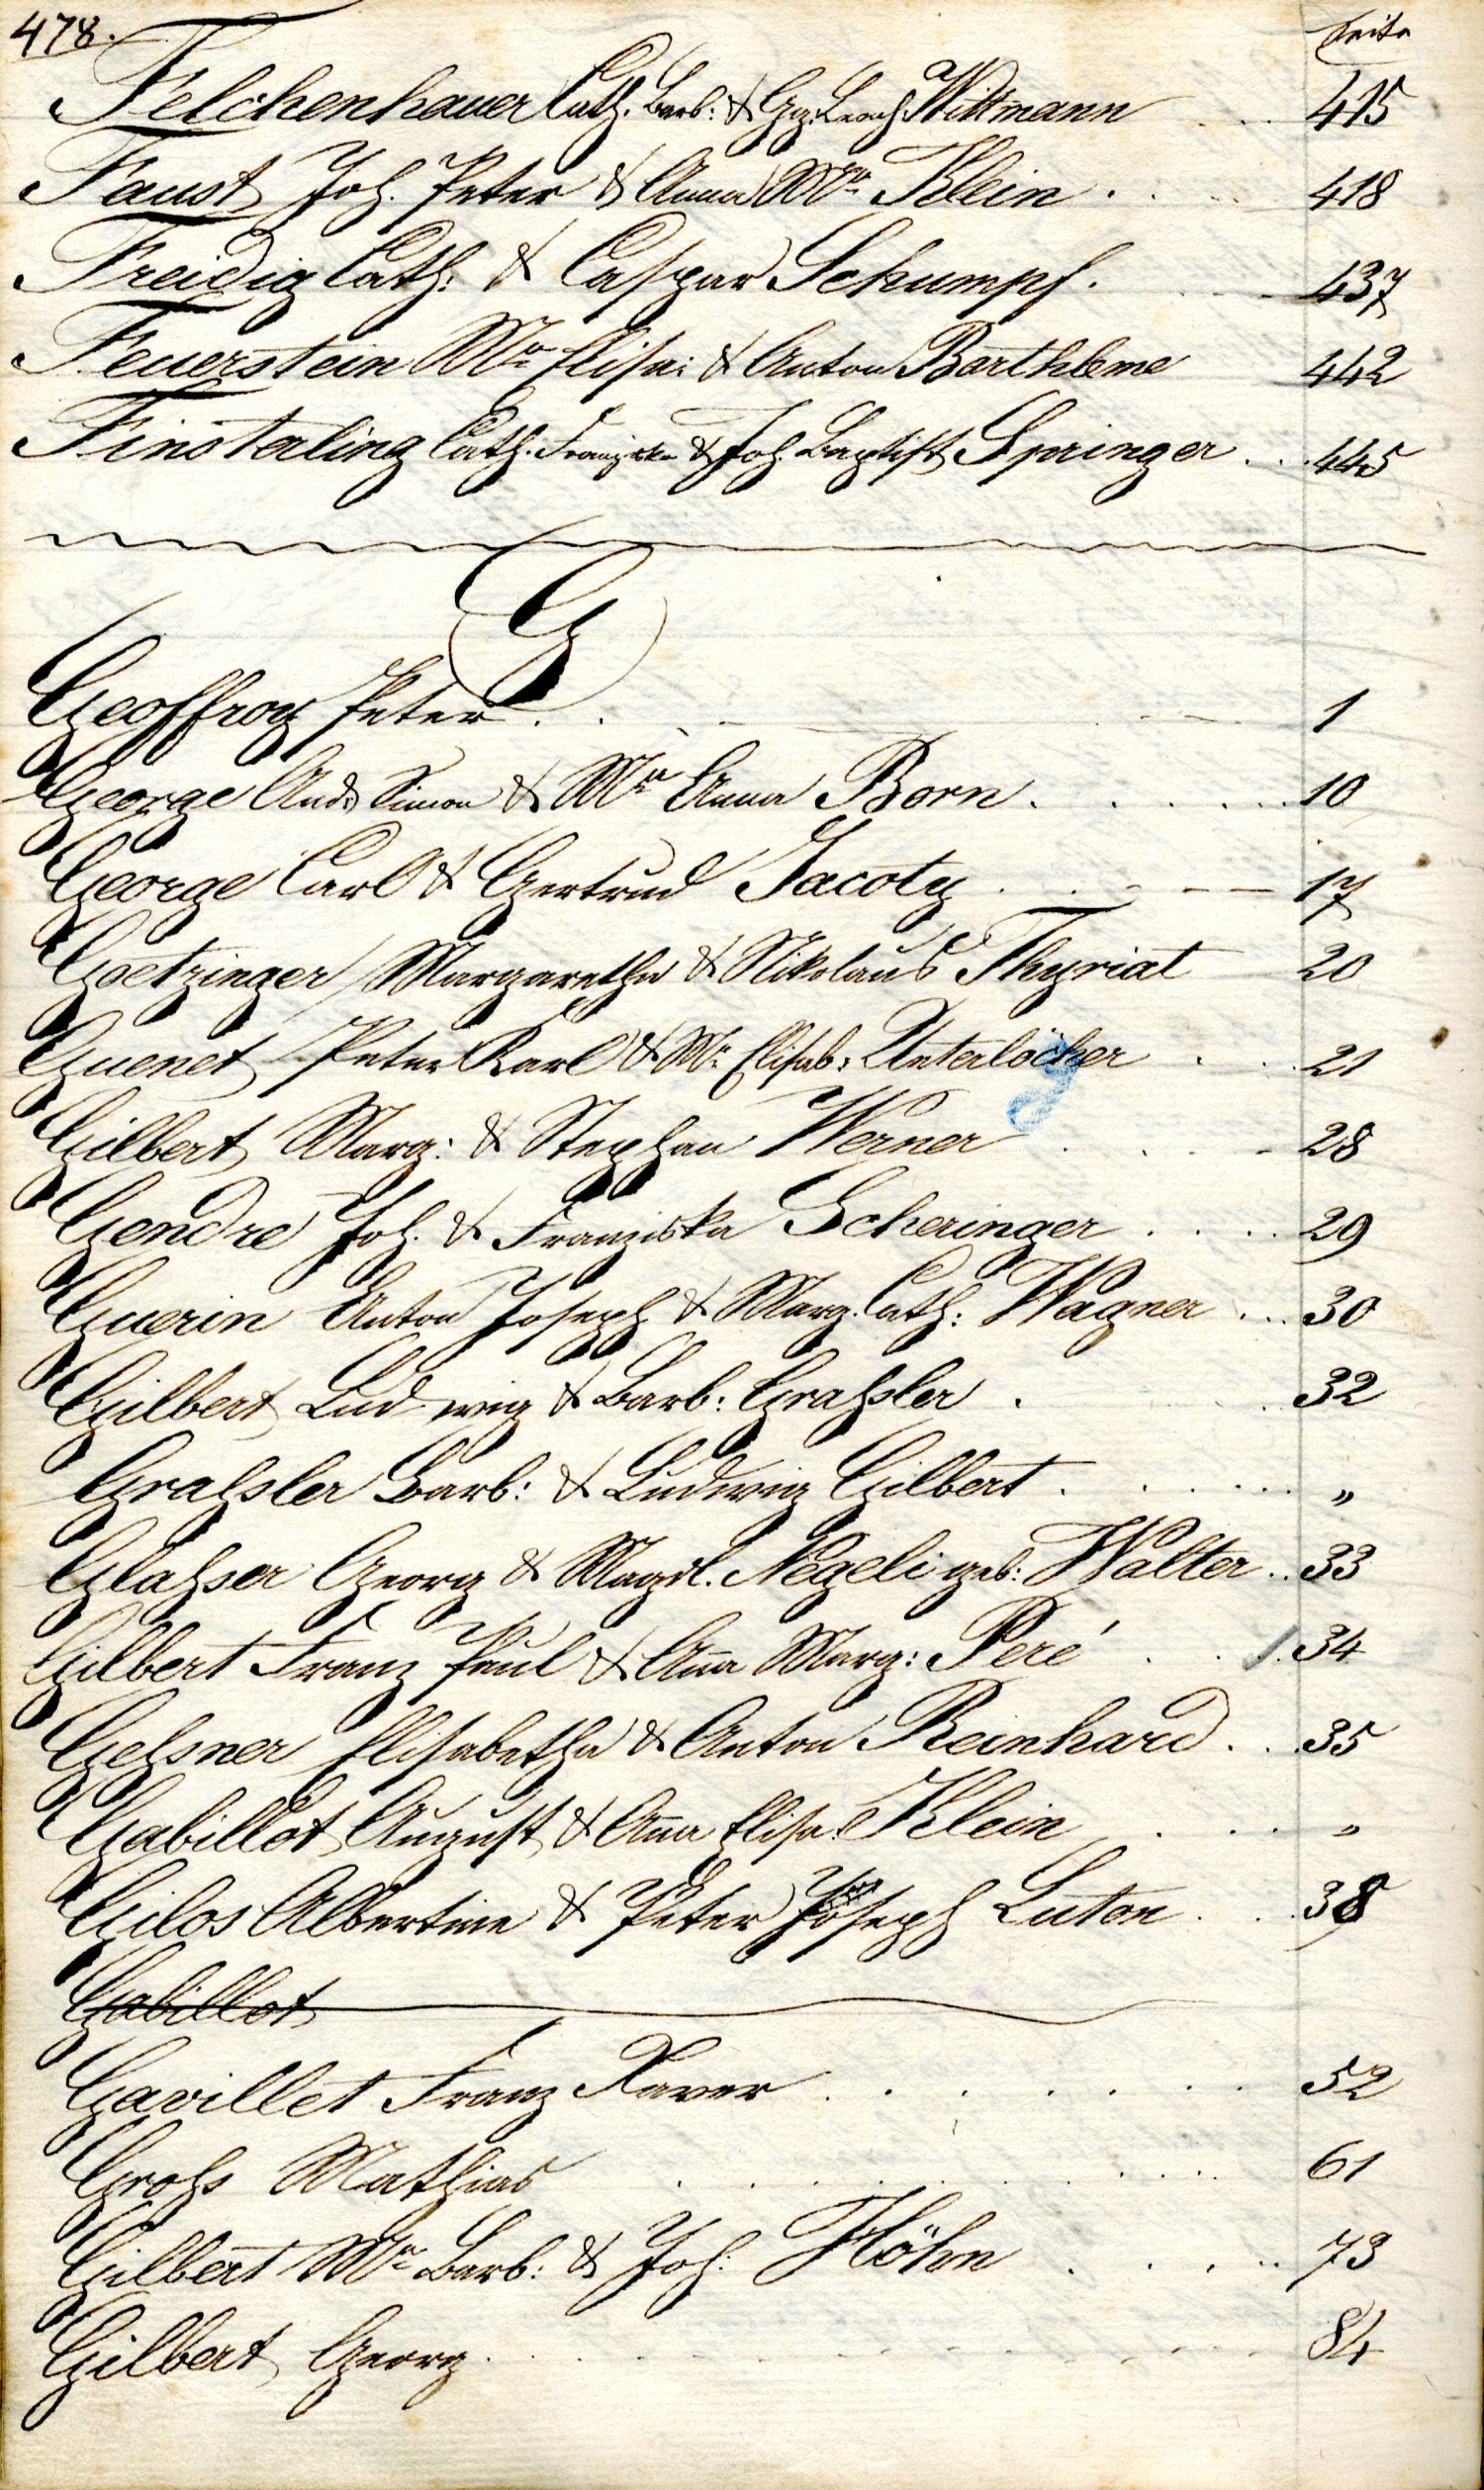 478.
Seite
Felchenhauer Cath. Barb: & Gg. Leonh. Wittmann 415
Faust Joh. Peter & Anna Mra Klein . . 418
Freidig Cath: & Caspar Schumpf. 437
Feuerstein Mra Elisa: & Anton Barthleme 442
Finsterling Cath. Franziska & Joh. Baptist Springer . . 445
G
Geoffroy Peter . . 1
George And. Simon & Mra Anna Born . . . 10
George Carl & Gertrud Jacoty . . 17
Goetzinger Margaretha & Nikolaus Thyriat 20
Guenet Peter Karl & Mr. Elisab: Unterlöcher . . 21
Gilbert Marg: & Stephan Werner . . 28
Gendre Joh. & Franziska Scheringer . . . 29
Guerin Anton Joseph & Marg. Cath: Wagner . . 30
Gilbert Ludwig & Barb: Grahsler . . 32
Grahsler Barb: & Ludwig Gilbert . . . „
Glahser Georg & Magdl. Negeli geb: Walter . . 33
Gilbert Franz Paul & Ana Marg: Peré . . 34
Gehsner Elisabetha & Anton Reinhard . . 35
Gabillot August & Ana Elisa: Klein . . „
Gilos Albertine & Peter Joseph Luton . . 38
Gabillot
Gavillet Franz Xaver . . . . 52
Grohs Mathias . . . . 61
Gilbert Mra Barb: & Joh: Höhn . . . 73
Gilbert Georg . . . . 84